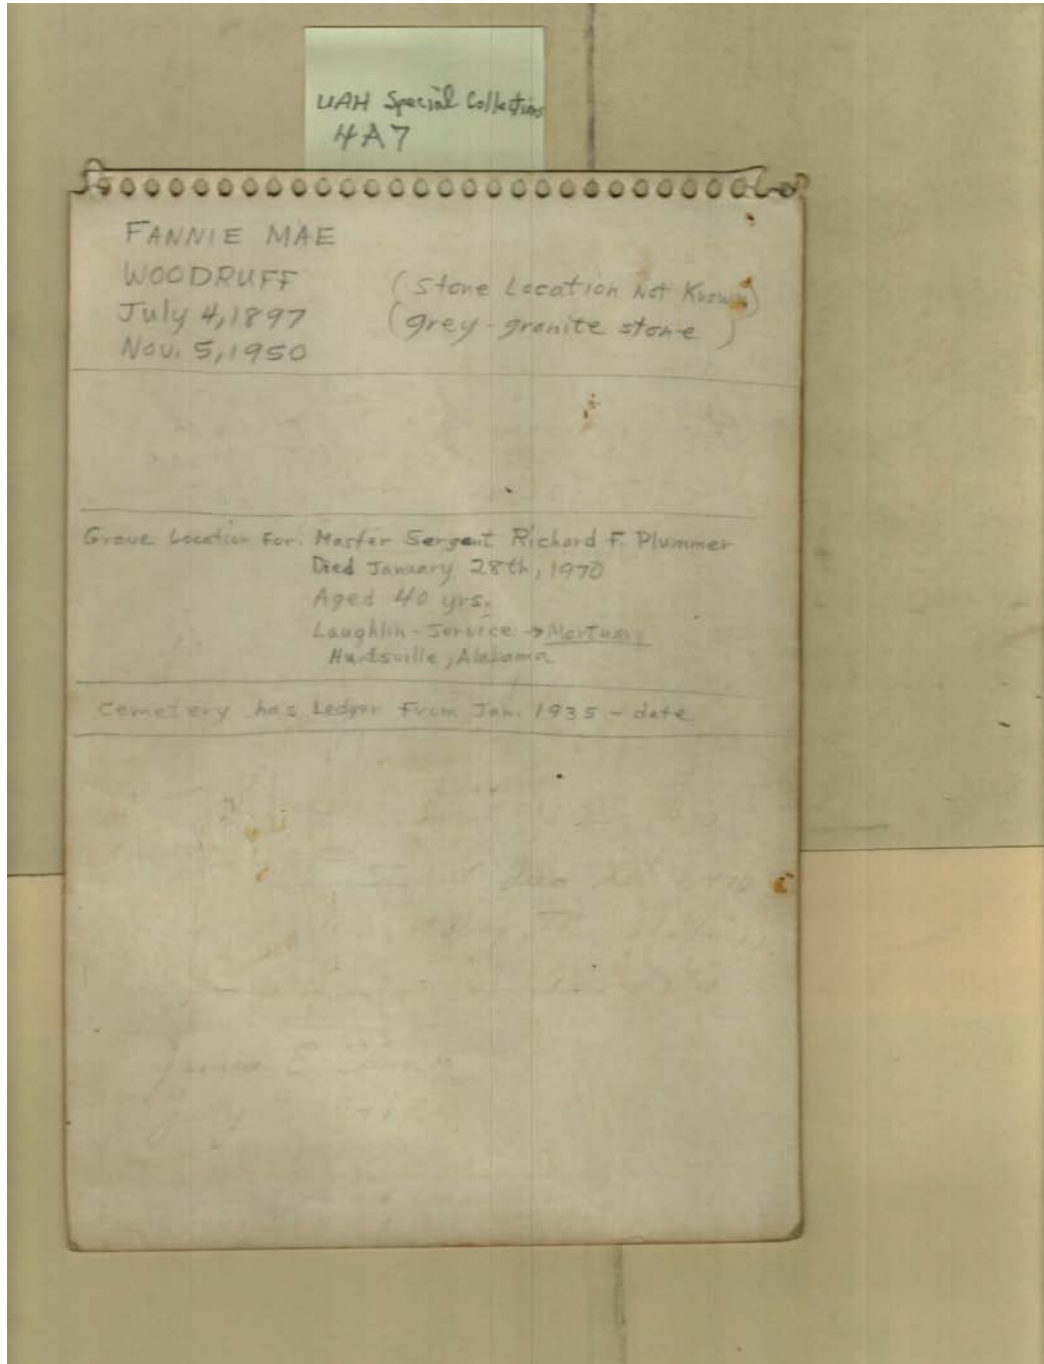 UAH Special Collections
4A7
FANNIE MAE
WOODRUFF
July 4, 1897
Nov. 5, 1950
(Stone Location Not Known)
(grey-granite stone)
Grave Location For: Master Sergent Richard F. Plummer
Died January 28th, 1970
Aged 40 yrs.
Laughlin-Service → Mortuary
Huntsville, Alabama
Cemetery has Ledger From Jan. 1935 - date